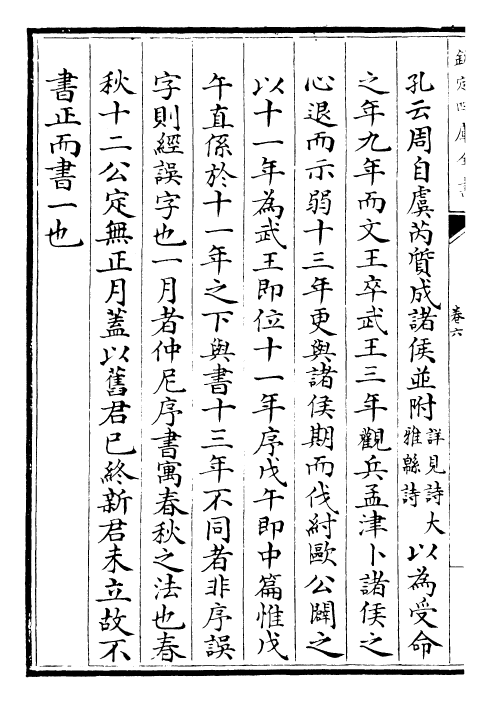 欽定四庫全書
卷六
孔云周自虞芮質成諸侯並附詳見詩大雅緜詩以為受命
之年九年而文王卒武王三年觀兵孟津卜諸侯之
心退而示弱十三年更與諸侯期而伐紂歐公闢之
以十一年為武王即位十一年序戊午即中篇惟戊
午直係於十一年之下與書十三年不同者非序誤
字則經誤字也一月者仲尼序書寓春秋之法也春
秋十二公定無正月蓋以舊君已終新君未立故不
書正而書一也